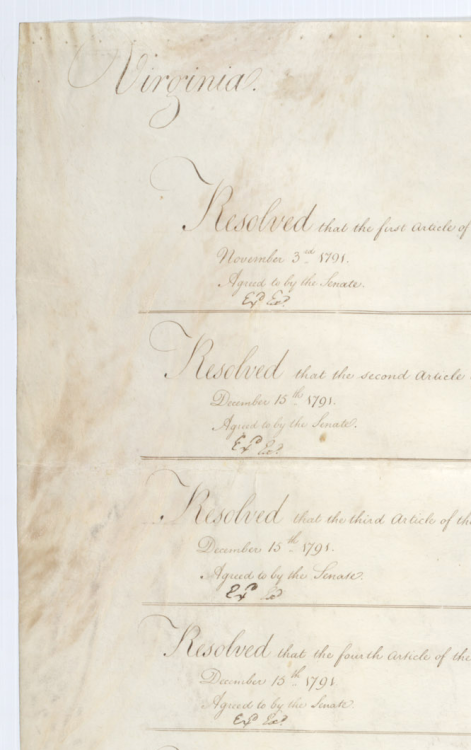 Virginia.
Resolved that the first Article of
November 3rd 1791.
Agreed to by the Senate.
Exd
Resolved that the second Article
December 15th 1791.
Agreed to by the Senate.
Exd
Resolved that the third Article of the
December 15th 1791.
Agreed to by the Senate.
Exd
Resolved that the fourth Article of the
December 15th 1791
Agreed to by the Senate.
Exd